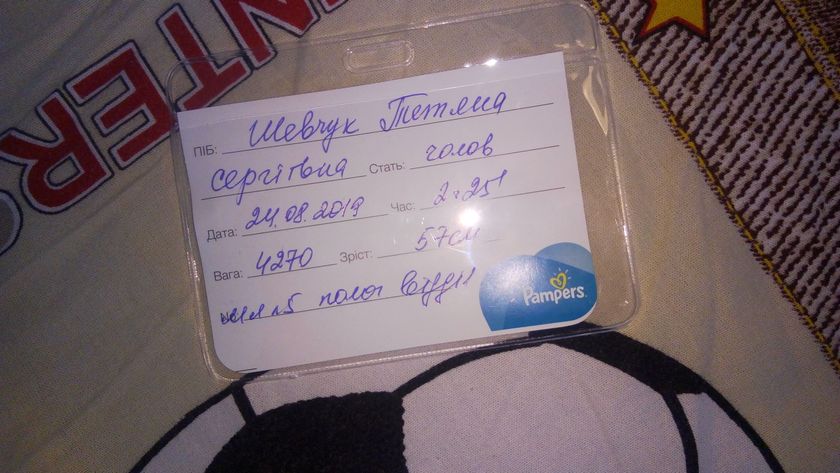 INTER
ПІБ: Шевчук Тетяна
Сергіївна Стать: чолов
Дата: 24.08.2019 Час: 2:25
Вага: 4270 Зріст: 57см
полог
Pampers